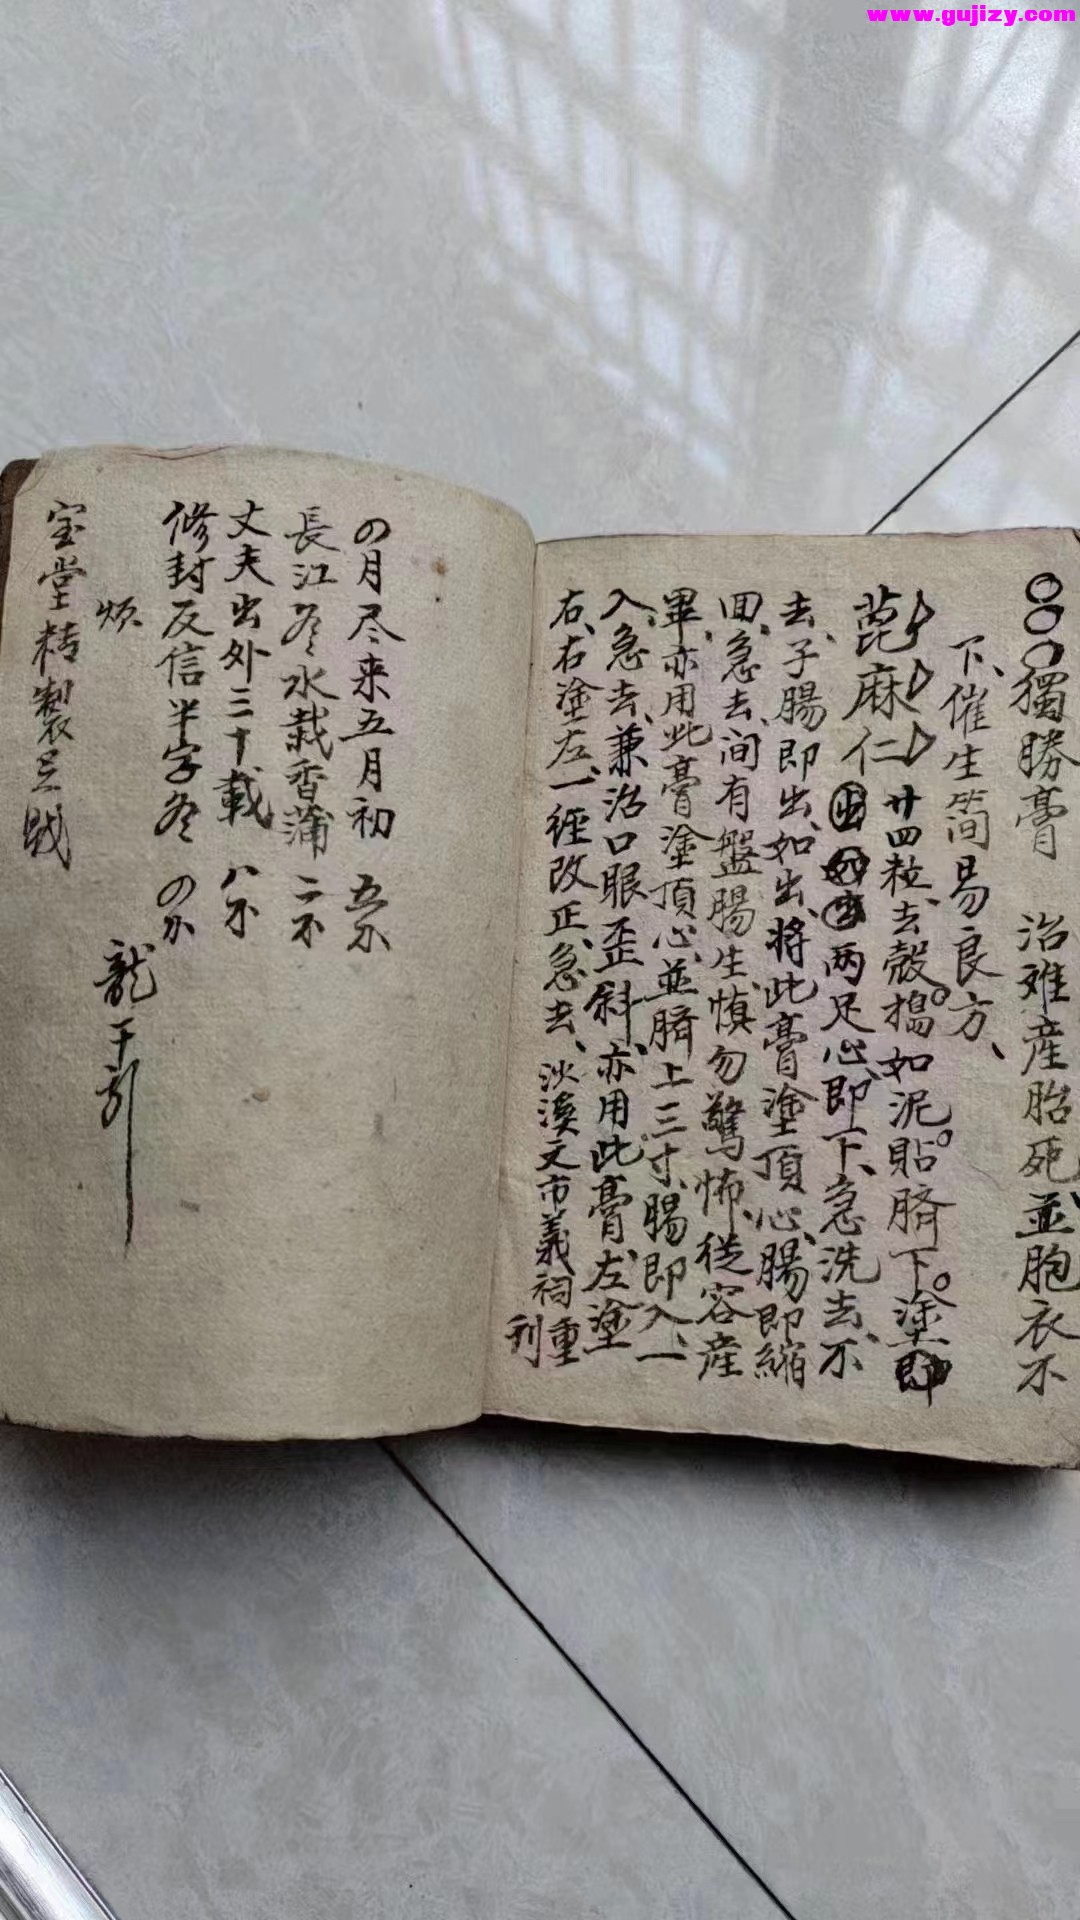 www.gujizy.com
獨勝膏 治难産胎死並胞衣不
下、催生简易良方、
萞麻仁 廿四粒、去殼。搗如泥。貼臍下。塗
两足心、即下、急洗去、不
去、子腸即出、如出、将此膏塗頂心、腸即縮
囬、急去、间有盤腸生、慎勿驚怖、從容産
畢、亦用此膏塗頂心、並臍上三寸、腸即入、一
入、急去、兼治口眼歪斜、亦用此膏、左塗
右、右塗左、一經改正、急去、
文市義祠重
刊
の月尽来五月初
長江冬水栽香蒲 二
丈夫出外三十載 八
修封反信半字冬 の
煩
龍
宝堂精製